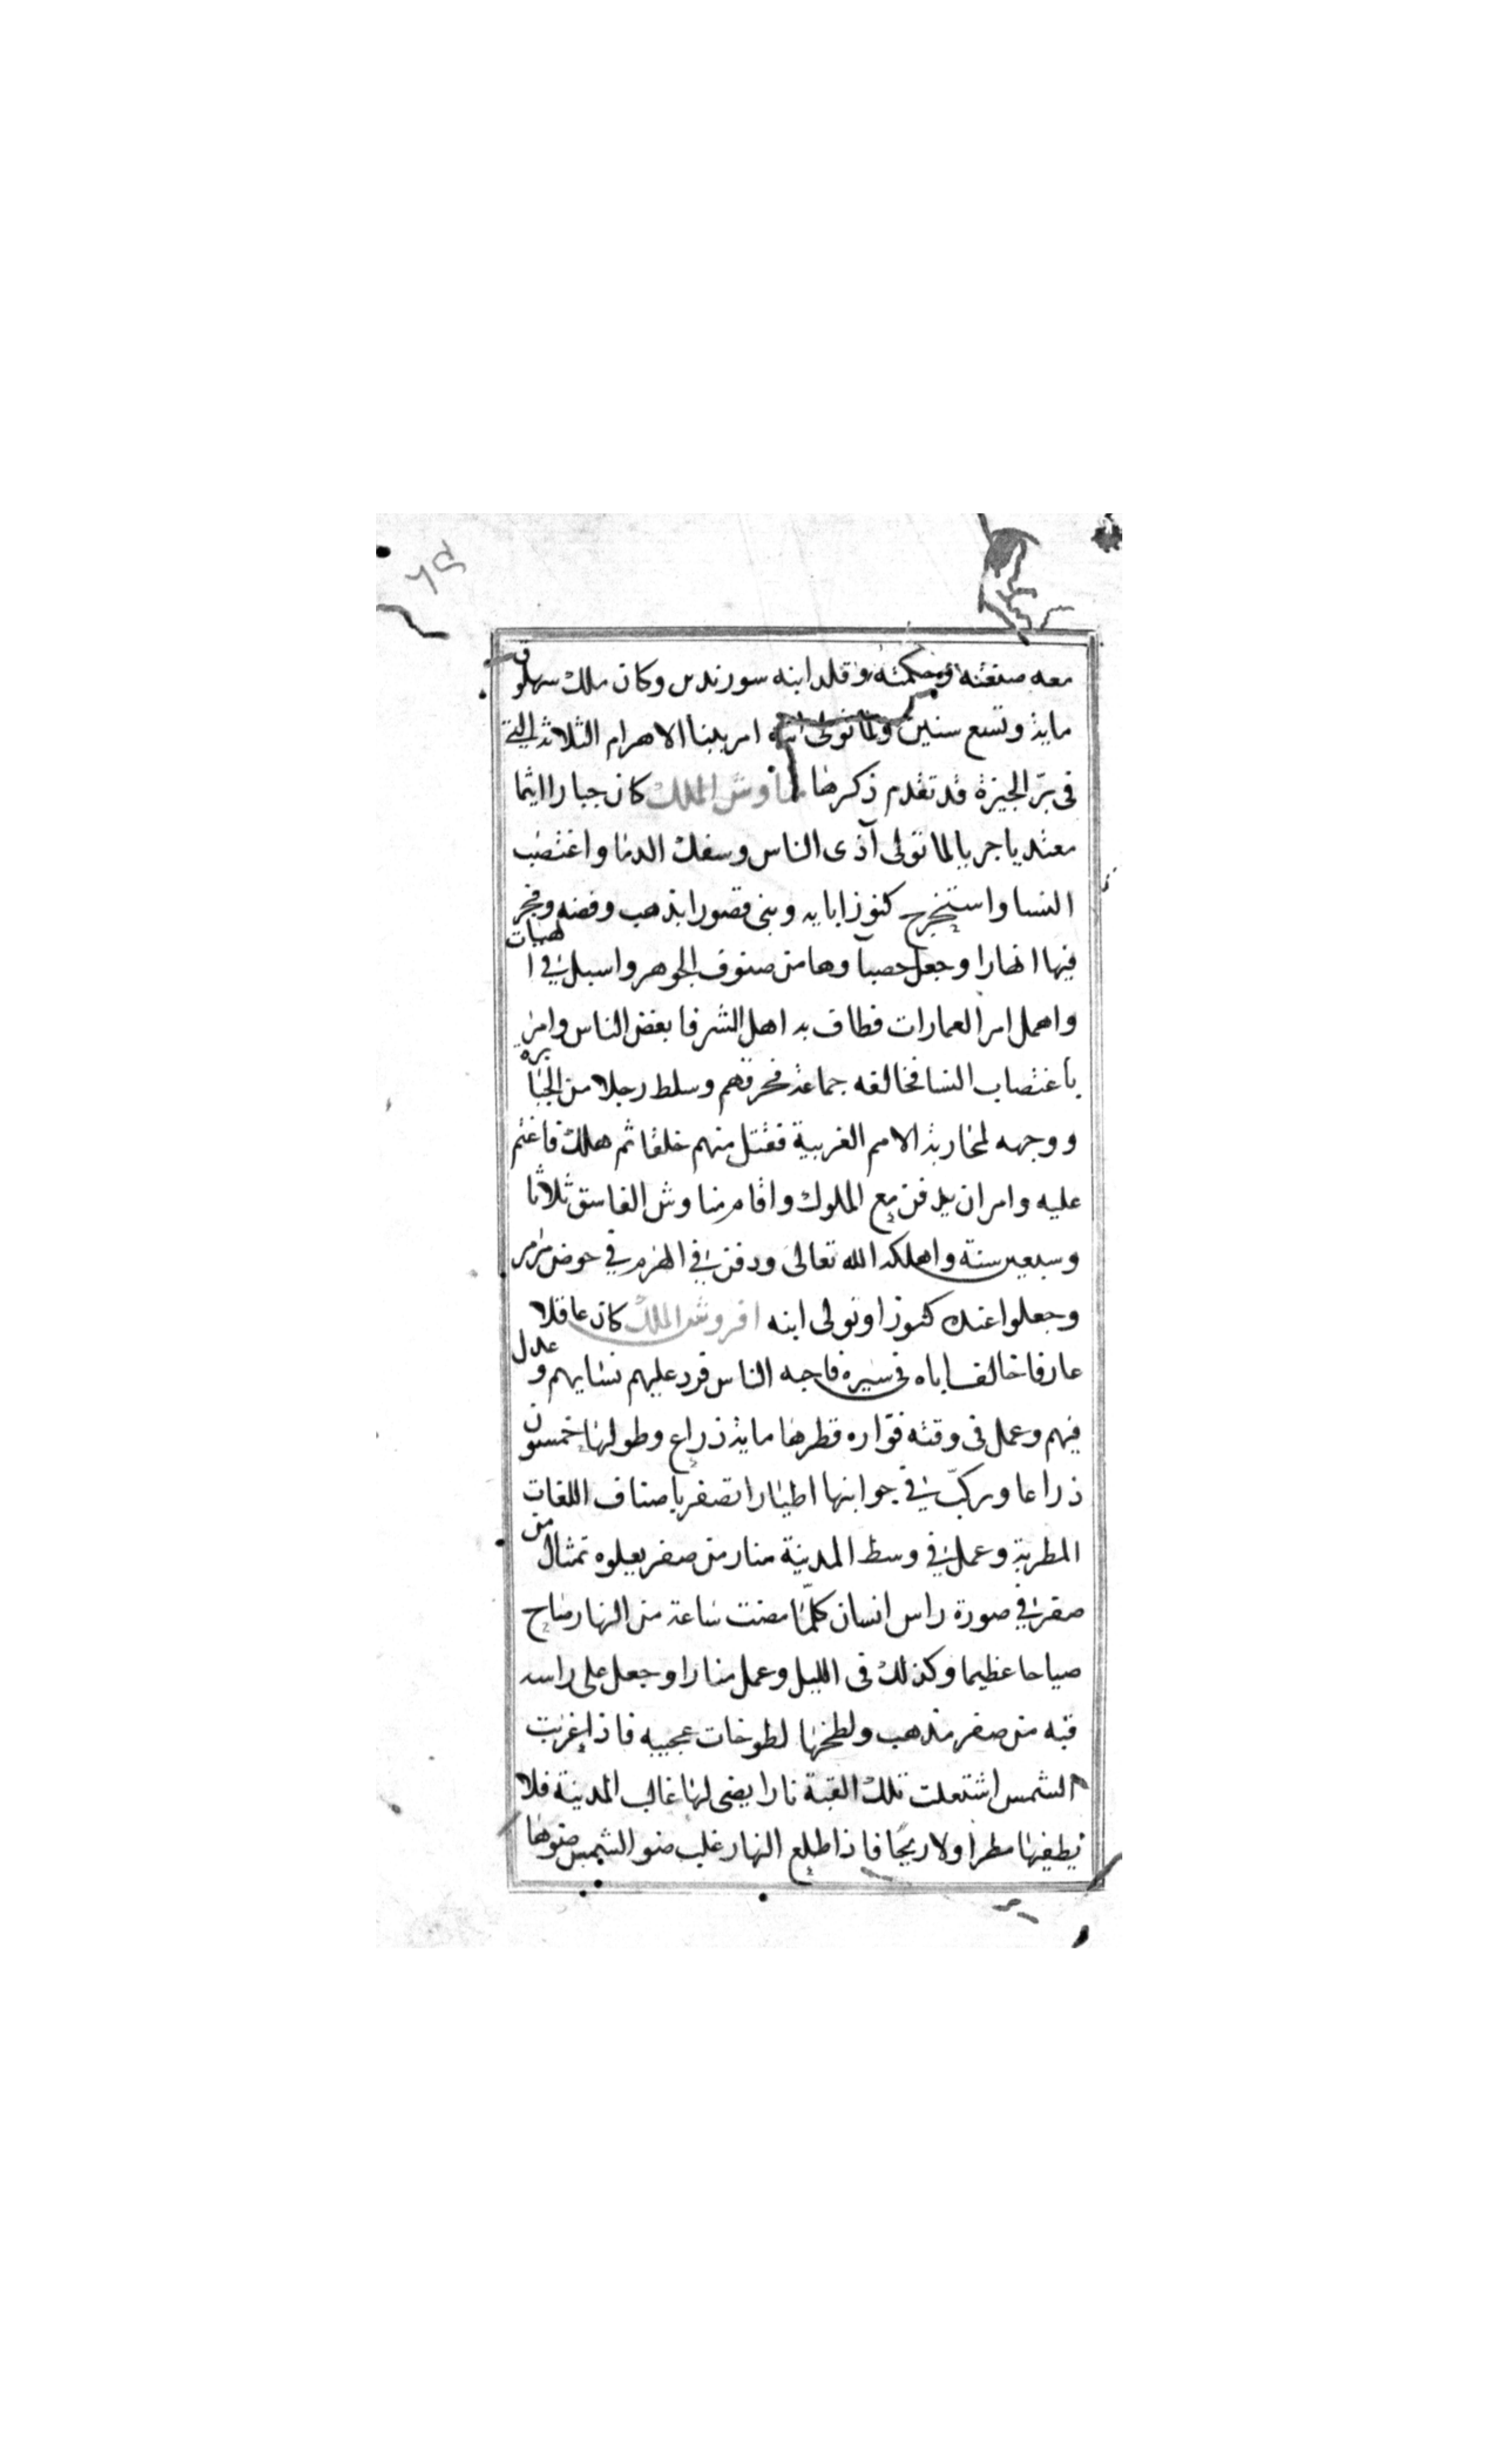 ٦٤
معه صنعته وحكمته وقلد ابنه سورندس وكان ملك سهلوق
ماية وتسع سنين ولما تولى ابنه امر ببنا الاهرام الثلاثة التي
فى بر الجيزة قد تقدم ذكرها مناوش الملك كان جبارا اثما
معتديا جريا لما تولى آذى الناس وسفك الدما واغتصب
النسا واستخرج كنوز ابايه وبنى قصورا بذهب وفضه وفجر
فيها انهارا وجعل حصباوها من صنوف الجوهر واسبل في الهبات
واهمل امر العمارات فطاف به اهل الشر فابغض الناس وامر
باغتصاب النسا فخالفه جماعة فحرقهم وسلط رجلا من الجبابرة
ووجهه لمحاربة الامم الغربية فقتل منهم خلقا ثم هلك فاغتم
عليه وامر ان يدفن مع الملوك واقام مناوش الفاسق ثلاثا
وسبعين سنة واهلكه الله تعالى ودفن في الهرم في حوض مرمر
وجعلوا عنده كنوزا وتولى ابنه افروش الملك كان عاقلا
عارفا خالف اباه فى سيره فاحبه الناس فرد عليهم نسايهم وعدل
فيهم وعمل فى وقته فواره قطرها ماية ذراع وطولها خمسون
ذراعا وركب في جوانبها اطيارا تصفر باصناف اللغات
المطربة وعمل في وسط المدينة منار من صفر يعلوه تمثال من
صفر في صورة راس انسان كلما مضت ساعة من النهار صاح
صياحا عظيما وكذلك فى الليل وعمل منارا وجعل على راسه
قبه من صفر مذهب ولطخها لطوخات عجيبه فاذا غربت
الشمس اشتعلت تلك القبة نارا يضى لها غالب المدينة فلا
يطفيها مطرا ولا ريحا فاذا طلع النهار غلب ضو الشمس ضوها